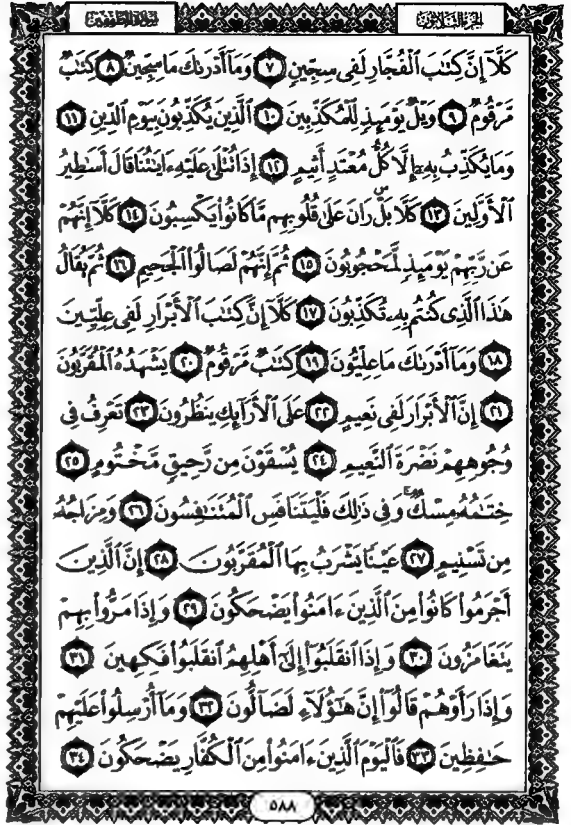 سورة المطففين
الجزء الثلاثون
كَلَّآ إِنَّ كِتَٰبَ ٱلْفُجَّارِ لَفِى سِجِّينٍ ٧ وَمَآ أَدْرَىٰكَ مَا سِجِّينٌ ٨ كِتَٰبٌ
مَّرْقُومٌ ٩ وَيْلٌ يَوْمَئِذٍ لِّلْمُكَذِّبِينَ ١٠ ٱلَّذِينَ يُكَذِّبُونَ بِيَوْمِ ٱلدِّينِ ١١
وَمَا يُكَذِّبُ بِهِۦٓ إِلَّا كُلُّ مُعْتَدٍ أَثِيمٍ ١٢ إِذَا تُتْلَىٰ عَلَيْهِ ءَايَٰتُنَا قَالَ أَسَٰطِيرُ
ٱلْأَوَّلِينَ ١٣ كَلَّا بَلْ رَانَ عَلَىٰ قُلُوبِهِم مَّا كَانُوا۟ يَكْسِبُونَ ١٤ كَلَّآ إِنَّهُمْ
عَن رَّبِّهِمْ يَوْمَئِذٍ لَّمَحْجُوبُونَ ١٥ ثُمَّ إِنَّهُمْ لَصَالُوا۟ ٱلْجَحِيمِ ١٦ ثُمَّ يُقَالُ
هَٰذَا ٱلَّذِى كُنتُم بِهِۦ تُكَذِّبُونَ ١٧ كَلَّآ إِنَّ كِتَٰبَ ٱلْأَبْرَارِ لَفِى عِلِّيِّينَ
١٨ وَمَآ أَدْرَىٰكَ مَا عِلِّيُّونَ ١٩ كِتَٰبٌ مَّرْقُومٌ ٢٠ يَشْهَدُهُ ٱلْمُقَرَّبُونَ
٢١ إِنَّ ٱلْأَبْرَارَ لَفِى نَعِيمٍ ٢٢ عَلَى ٱلْأَرَآئِكِ يَنظُرُونَ ٢٣ تَعْرِفُ فِى
وُجُوهِهِمْ نَضْرَةَ ٱلنَّعِيمِ ٢٤ يُسْقَوْنَ مِن رَّحِيقٍ مَّخْتُومٍ ٢٥
خِتَٰمُهُۥ مِسْكٌ ۚ وَفِى ذَٰلِكَ فَلْيَتَنَافَسِ ٱلْمُتَنَٰفِسُونَ ٢٦ وَمِزَاجُهُۥ
مِن تَسْنِيمٍ ٢٧ عَيْنًا يَشْرَبُ بِهَا ٱلْمُقَرَّبُونَ ٢٨ إِنَّ ٱلَّذِينَ
أَجْرَمُوا۟ كَانُوا۟ مِنَ ٱلَّذِينَ ءَامَنُوا۟ يَضْحَكُونَ ٢٩ وَإِذَا مَرُّوا۟ بِهِمْ
يَتَغَامَزُونَ ٣٠ وَإِذَا ٱنقَلَبُوٓا۟ إِلَىٰٓ أَهْلِهِمُ ٱنقَلَبُوا۟ فَكِهِينَ ٣١
وَإِذَا رَأَوْهُمْ قَالُوٓا۟ إِنَّ هَٰٓؤُلَآءِ لَضَآلُّونَ ٣٢ وَمَآ أُرْسِلُوا۟ عَلَيْهِمْ
حَٰفِظِينَ ٣٣ فَٱلْيَوْمَ ٱلَّذِينَ ءَامَنُوا۟ مِنَ ٱلْكُفَّارِ يَضْحَكُونَ ٣٤
٥٨٨